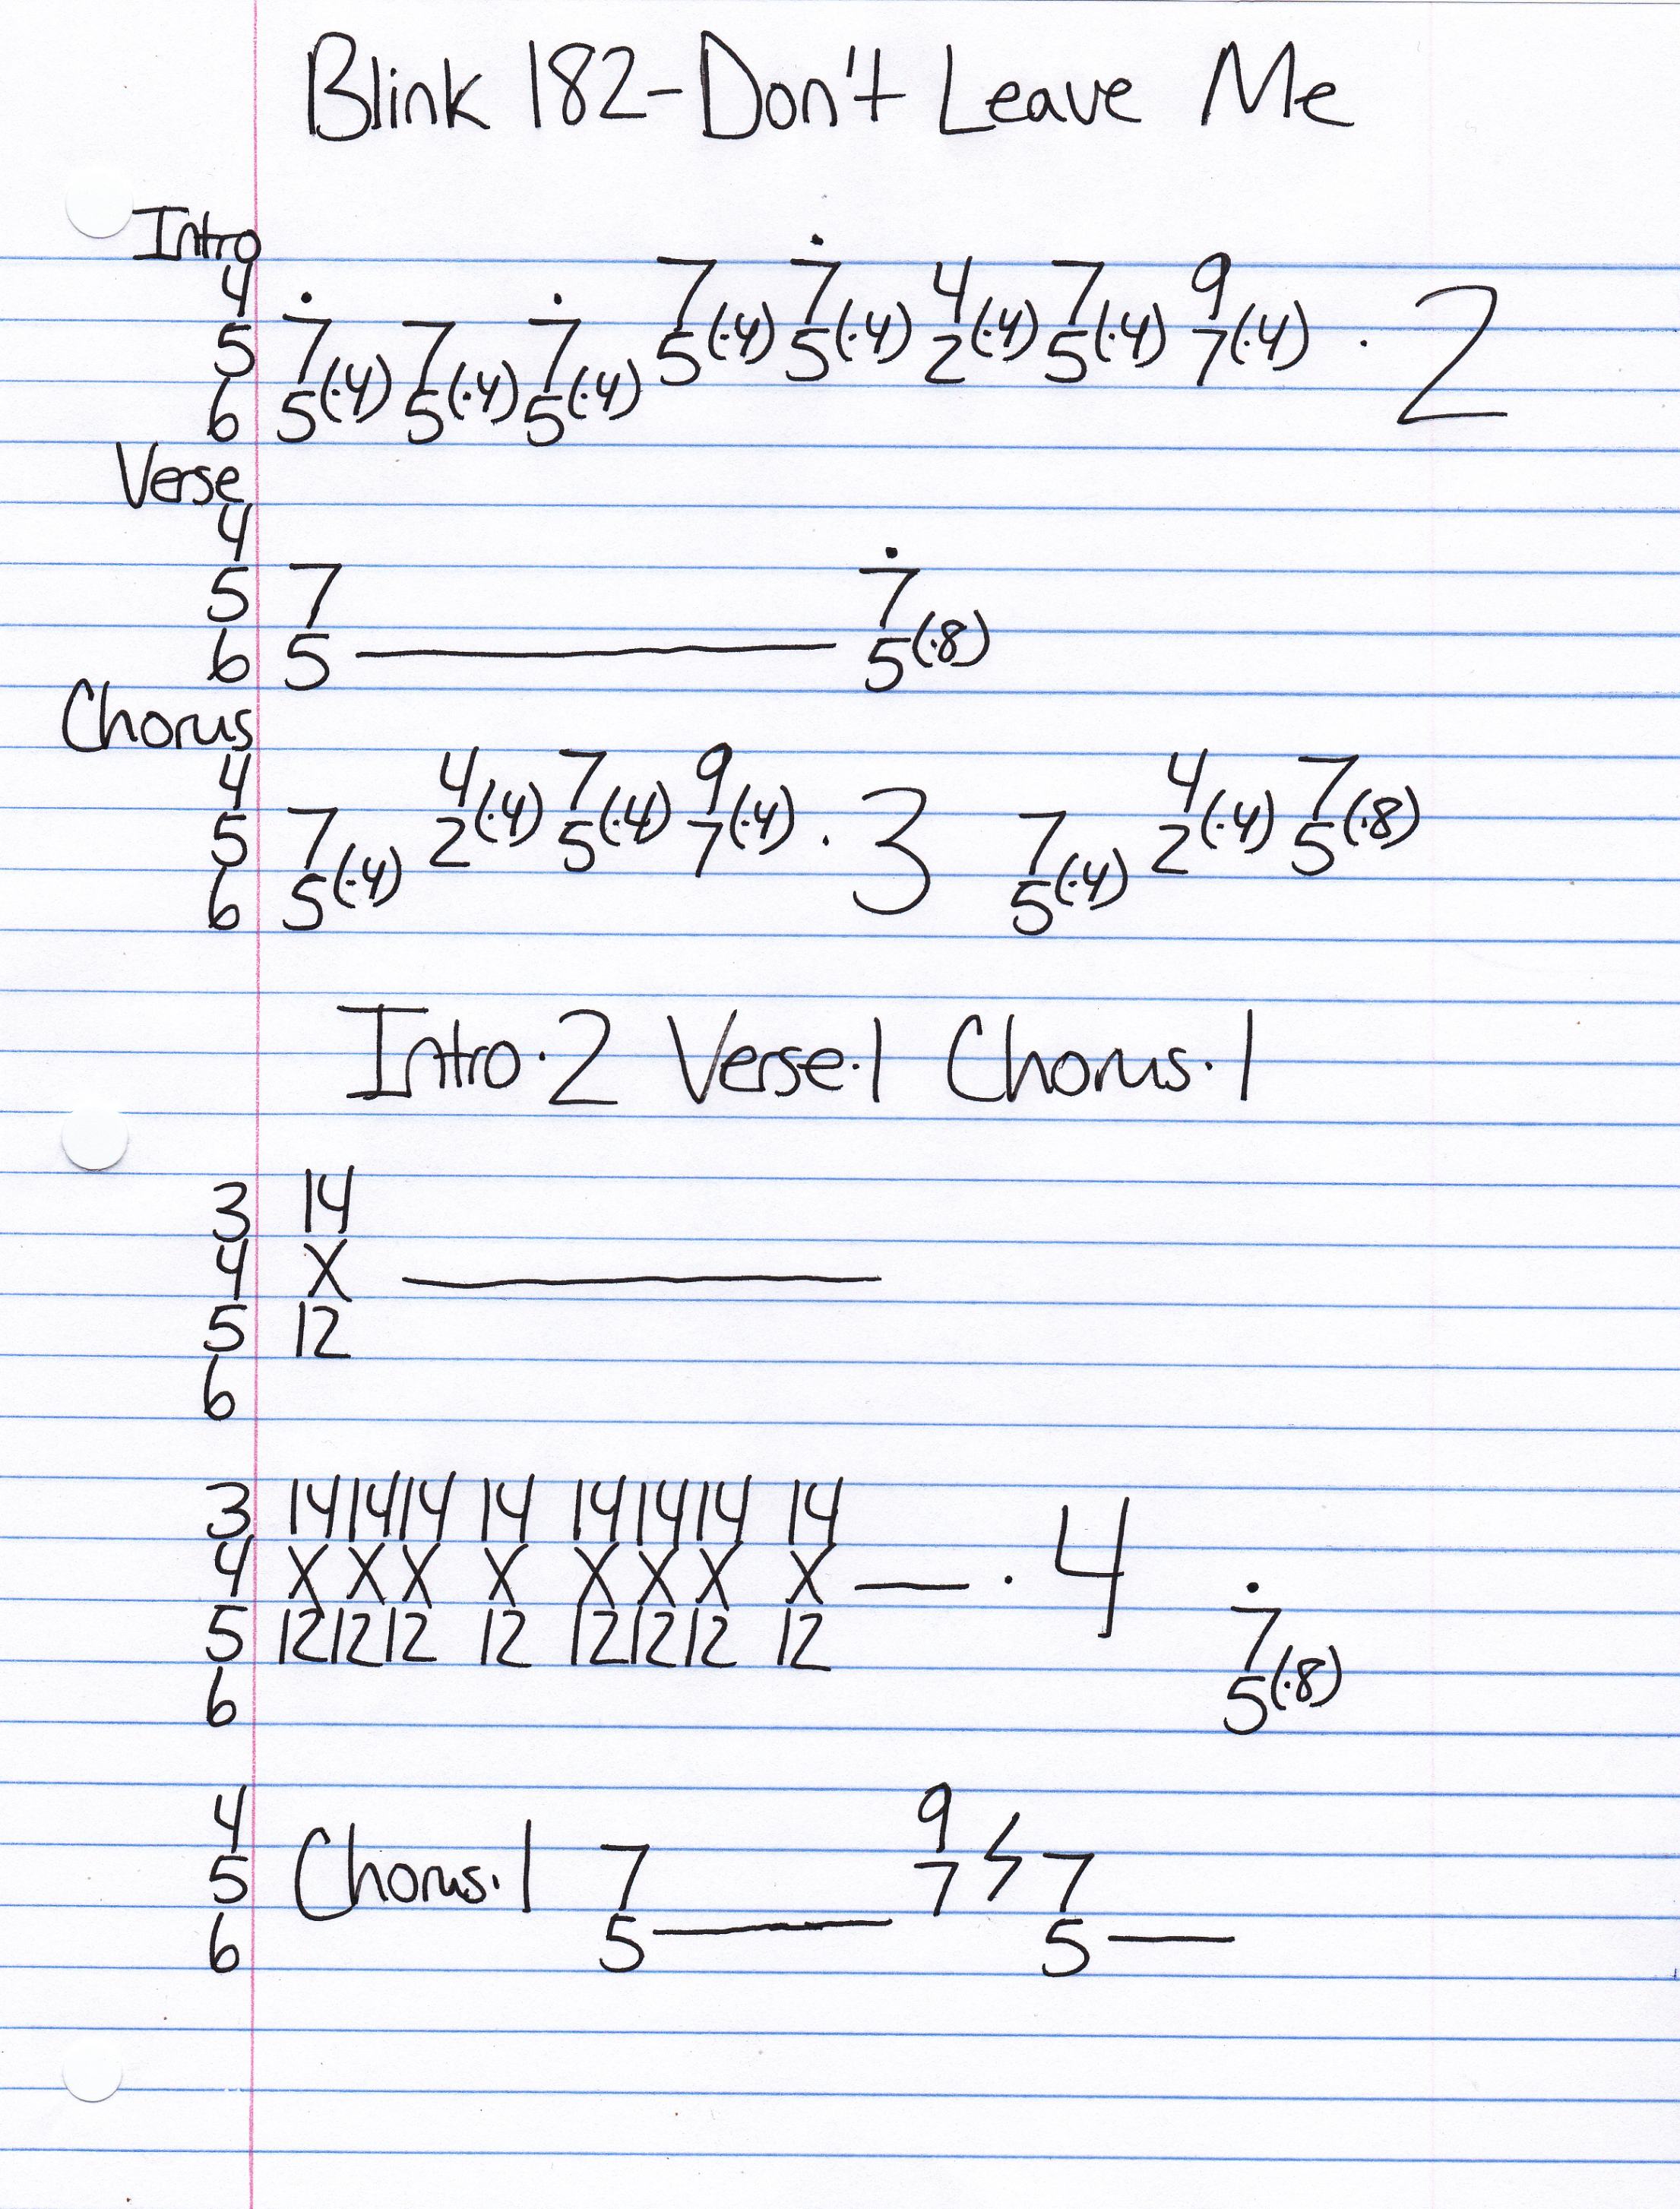 Blink 182-Don't Leave Me
Intro
4 7(·4) 7(·4) 4(·4) 7(·4) 9(·4) · 2
5 7 7 7 5 5 2 5 7
6 5(·4) 5(·4) 5(·4)
Verse
4
5 7 7
6 5 5(·8)
Chorus
4 4(·4) 7(·4) 9(·4) 4(·4) 7(·8)
5 7 2 5 7 · 3 7 2 5
6 5(·4) 5(·4)
Intro·2 Verse·1 Chorus·1
3 14
4 X
5 12
6
3 14 14 14 14 14 14 14 14
4 X X X X X X X X — · 4
5 12 12 12 12 12 12 12 12 7
6 5(·8)
4 9
5 Chorus·1 7 7 7
6 5 5